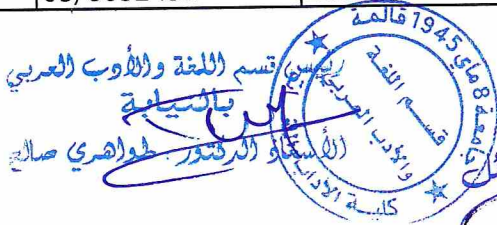 رئيس قسم اللغة والأدب العربي
بالنيابة
الأستاذ الدكتور: طواهري صالح
جامعة 8 ماي 1945 قالمة
كلية الآداب
قسم اللغة
والأدب العربي